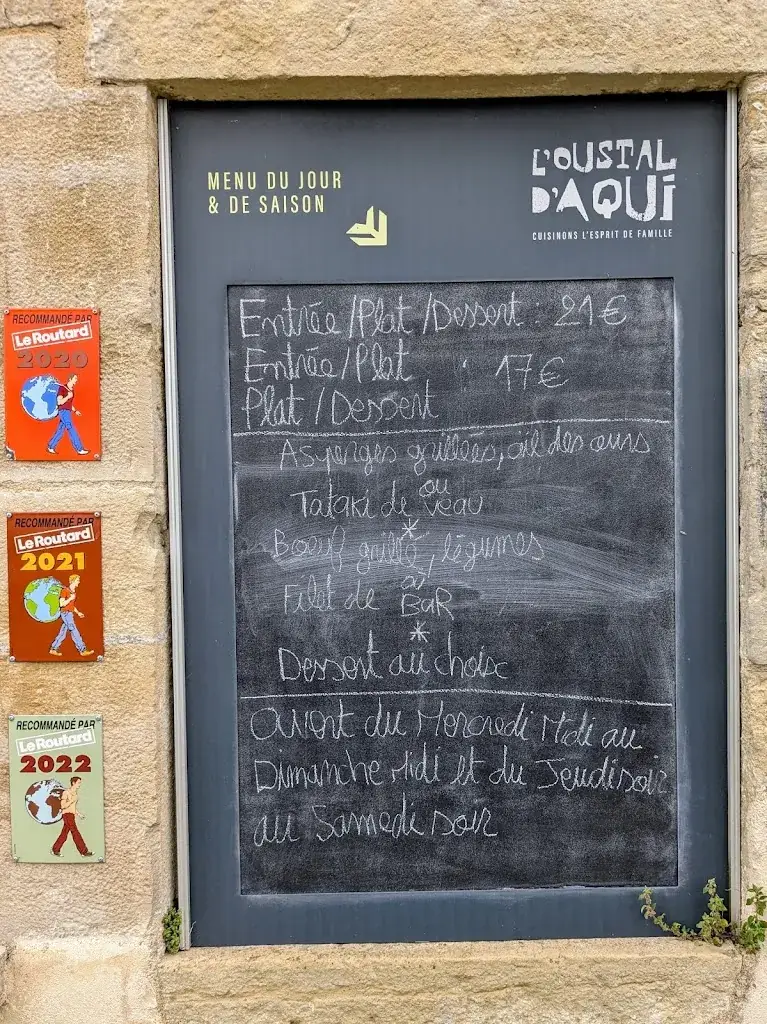 MENU DU JOUR
& DE SAISON
L'OUSTAL
D'AQUÍ
CUISINONS L'ESPRIT DE FAMILLE
Entrée/Plat/Dessert : 21€
Entrée/Plat : 17€
Plat/Dessert
Asperges grillées, ail des ours
ou
Tataki de veau
*
Boeuf grillé, légumes
ou
Filet de BaR
*
Dessert au choix
Ouvert du Mercredi Midi au
Dimanche Midi et du Jeudi soir
au Samedi soir
RECOMMANDÉ PAR
Le Routard
2020
RECOMMANDÉ PAR
Le Routard
2021
RECOMMANDÉ PAR
Le Routard
2022